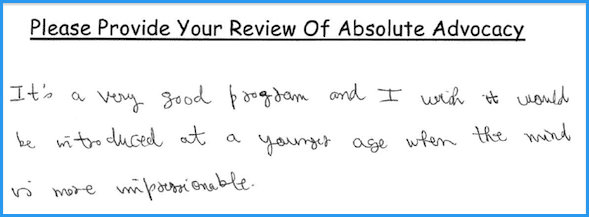 Please Provide Your Review Of Absolute Advocacy
It's a very good program and I wish it would
be introduced at a younger age when the mind
is more impressionable.